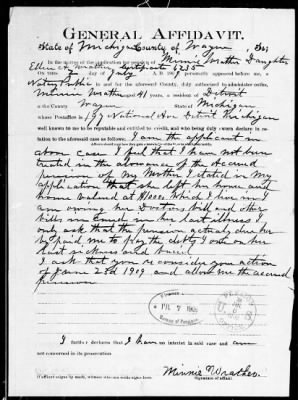 GENERAL AFFIDAVIT.
State of Michigan County of Wayne, ss:
In the matter of the application for pension of Minnie Wrather Daughter
Ellen A Wrather Certificate 6235
On this 2 day of July A. D. 1909 personally appeared before me, a
Notary Public in and for the aforesaid County, duly authorized to administer oaths,
Minnie Wrather aged 41 years, a resident of Detroit
in the County Wayne State of Michigan
whose Postoffice is 199 National Ave Detroit Michigan
well known to me to be reputable and entitled to credit, and who being duly sworn declares in re-
lation to the aforesaid case as follows: I am the applicant in
above Case. I feel that I have not been
treated in the allowance of the accrued
pension of my Mother I stated in my
application that she left her house and
home valued at $1000 Which I have not
am owing her Doctors bill and other
bills made in her last illness I
only ask that the pension actually due her
be paid me to pay the debts I owe on her
last sickness and burial
I ask that you reconsider you action
of June 23d 1909 and allow me the accrued
pension
JUL 7 1909
Bureau of Pensions
I further declare that I have no interest in said case and am
not concerned in its prosecution
Minnie Wrather
(If affiant signs by mark, witness who can write signs here)
Signature of affiant.